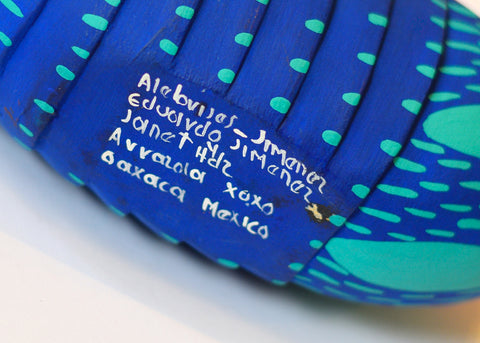 Alebrijes_Jimenez
Eduardo Jimenez y
Janet Hdz
Arrazola xoxo
oaxaca Mexico